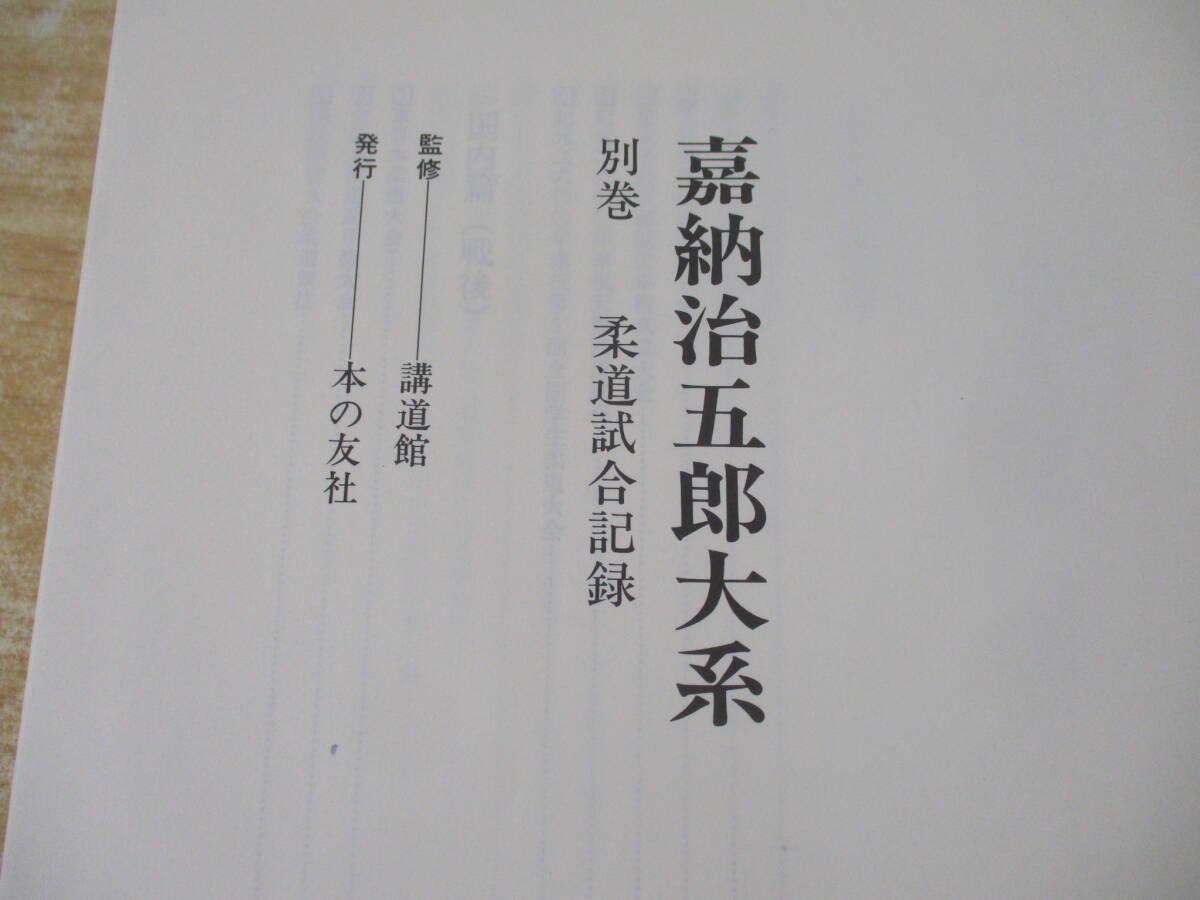 嘉納治五郎大系
別巻 柔道試合記録
監修――講道館
発行――本の友社
国内篇(戦後)